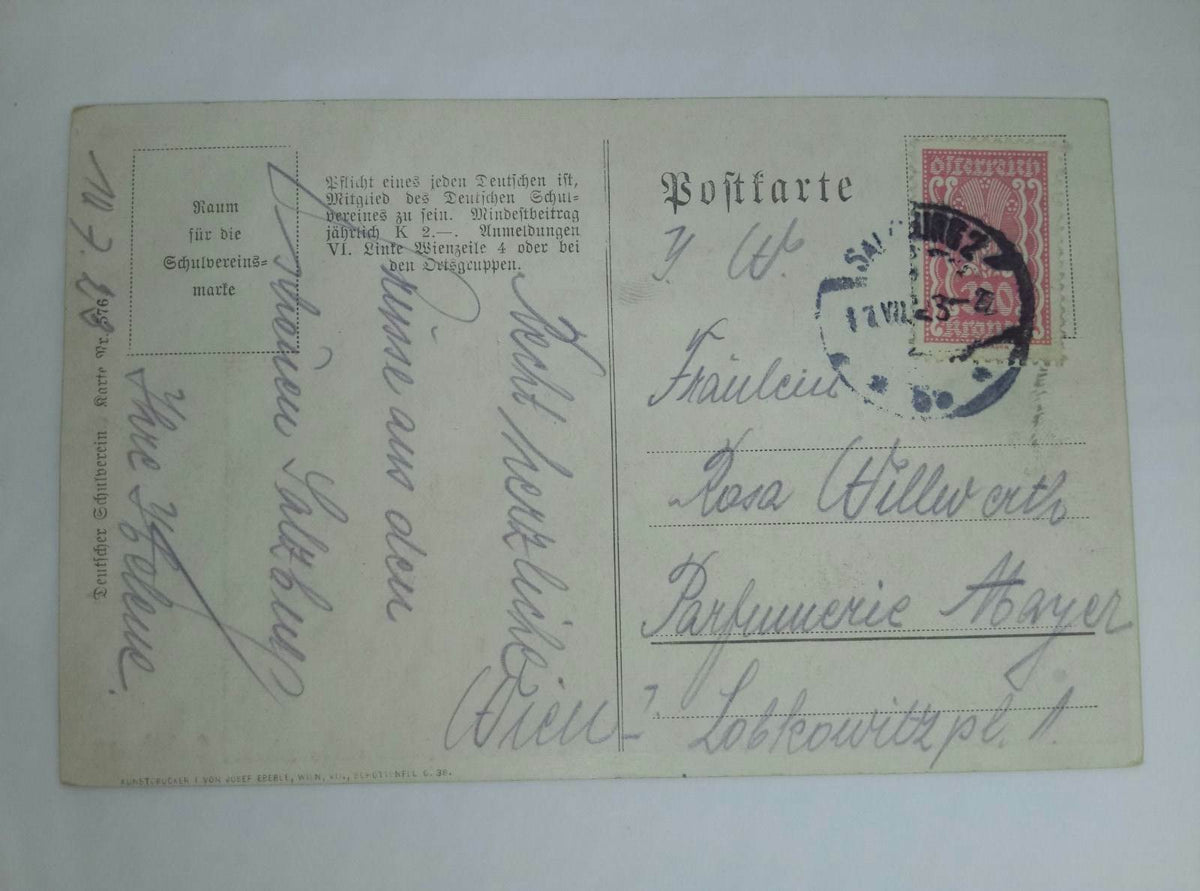 Raum
für die
Schulvereins-
marke
Pflicht eines jeden Deutschen ist,
Mitglied des Deutschen Schul-
vereines zu sein. Mindestbeitrag
jährlich K 2.—. Anmeldungen
VI. Linke Wienzeile 4 oder bei
den Ortsgruppen.
Deutscher Schulverein Karte Nr. 576
Recht herzliche
Küsse aus den
schönen Salzburg
Ihre Helene.
10.7.23
Postkarte
österreich
Kronen
SALZBURG 2
VII 23
Fräulein
Rosa Willwerth
Parfumerie Mayer
Wien I.
Lobkowitzpl. 1.
KUNSTDRUCKEREI VON JOSEF EBERLE, WIEN, VII., SCHOTTENFELDG. 38.